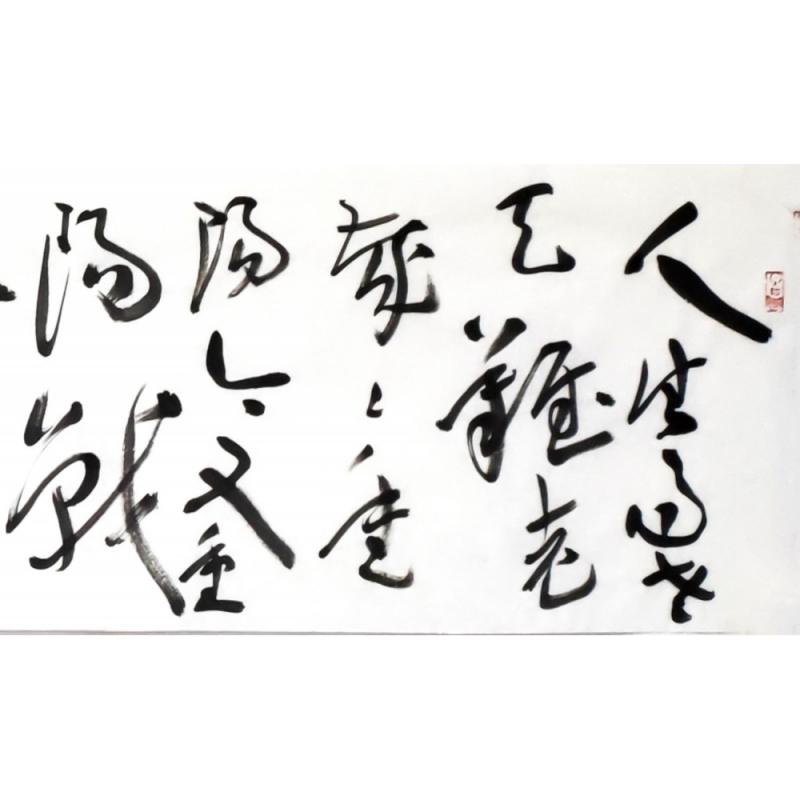 人生易老
天難老
歲々重
陽今又重
陽戰